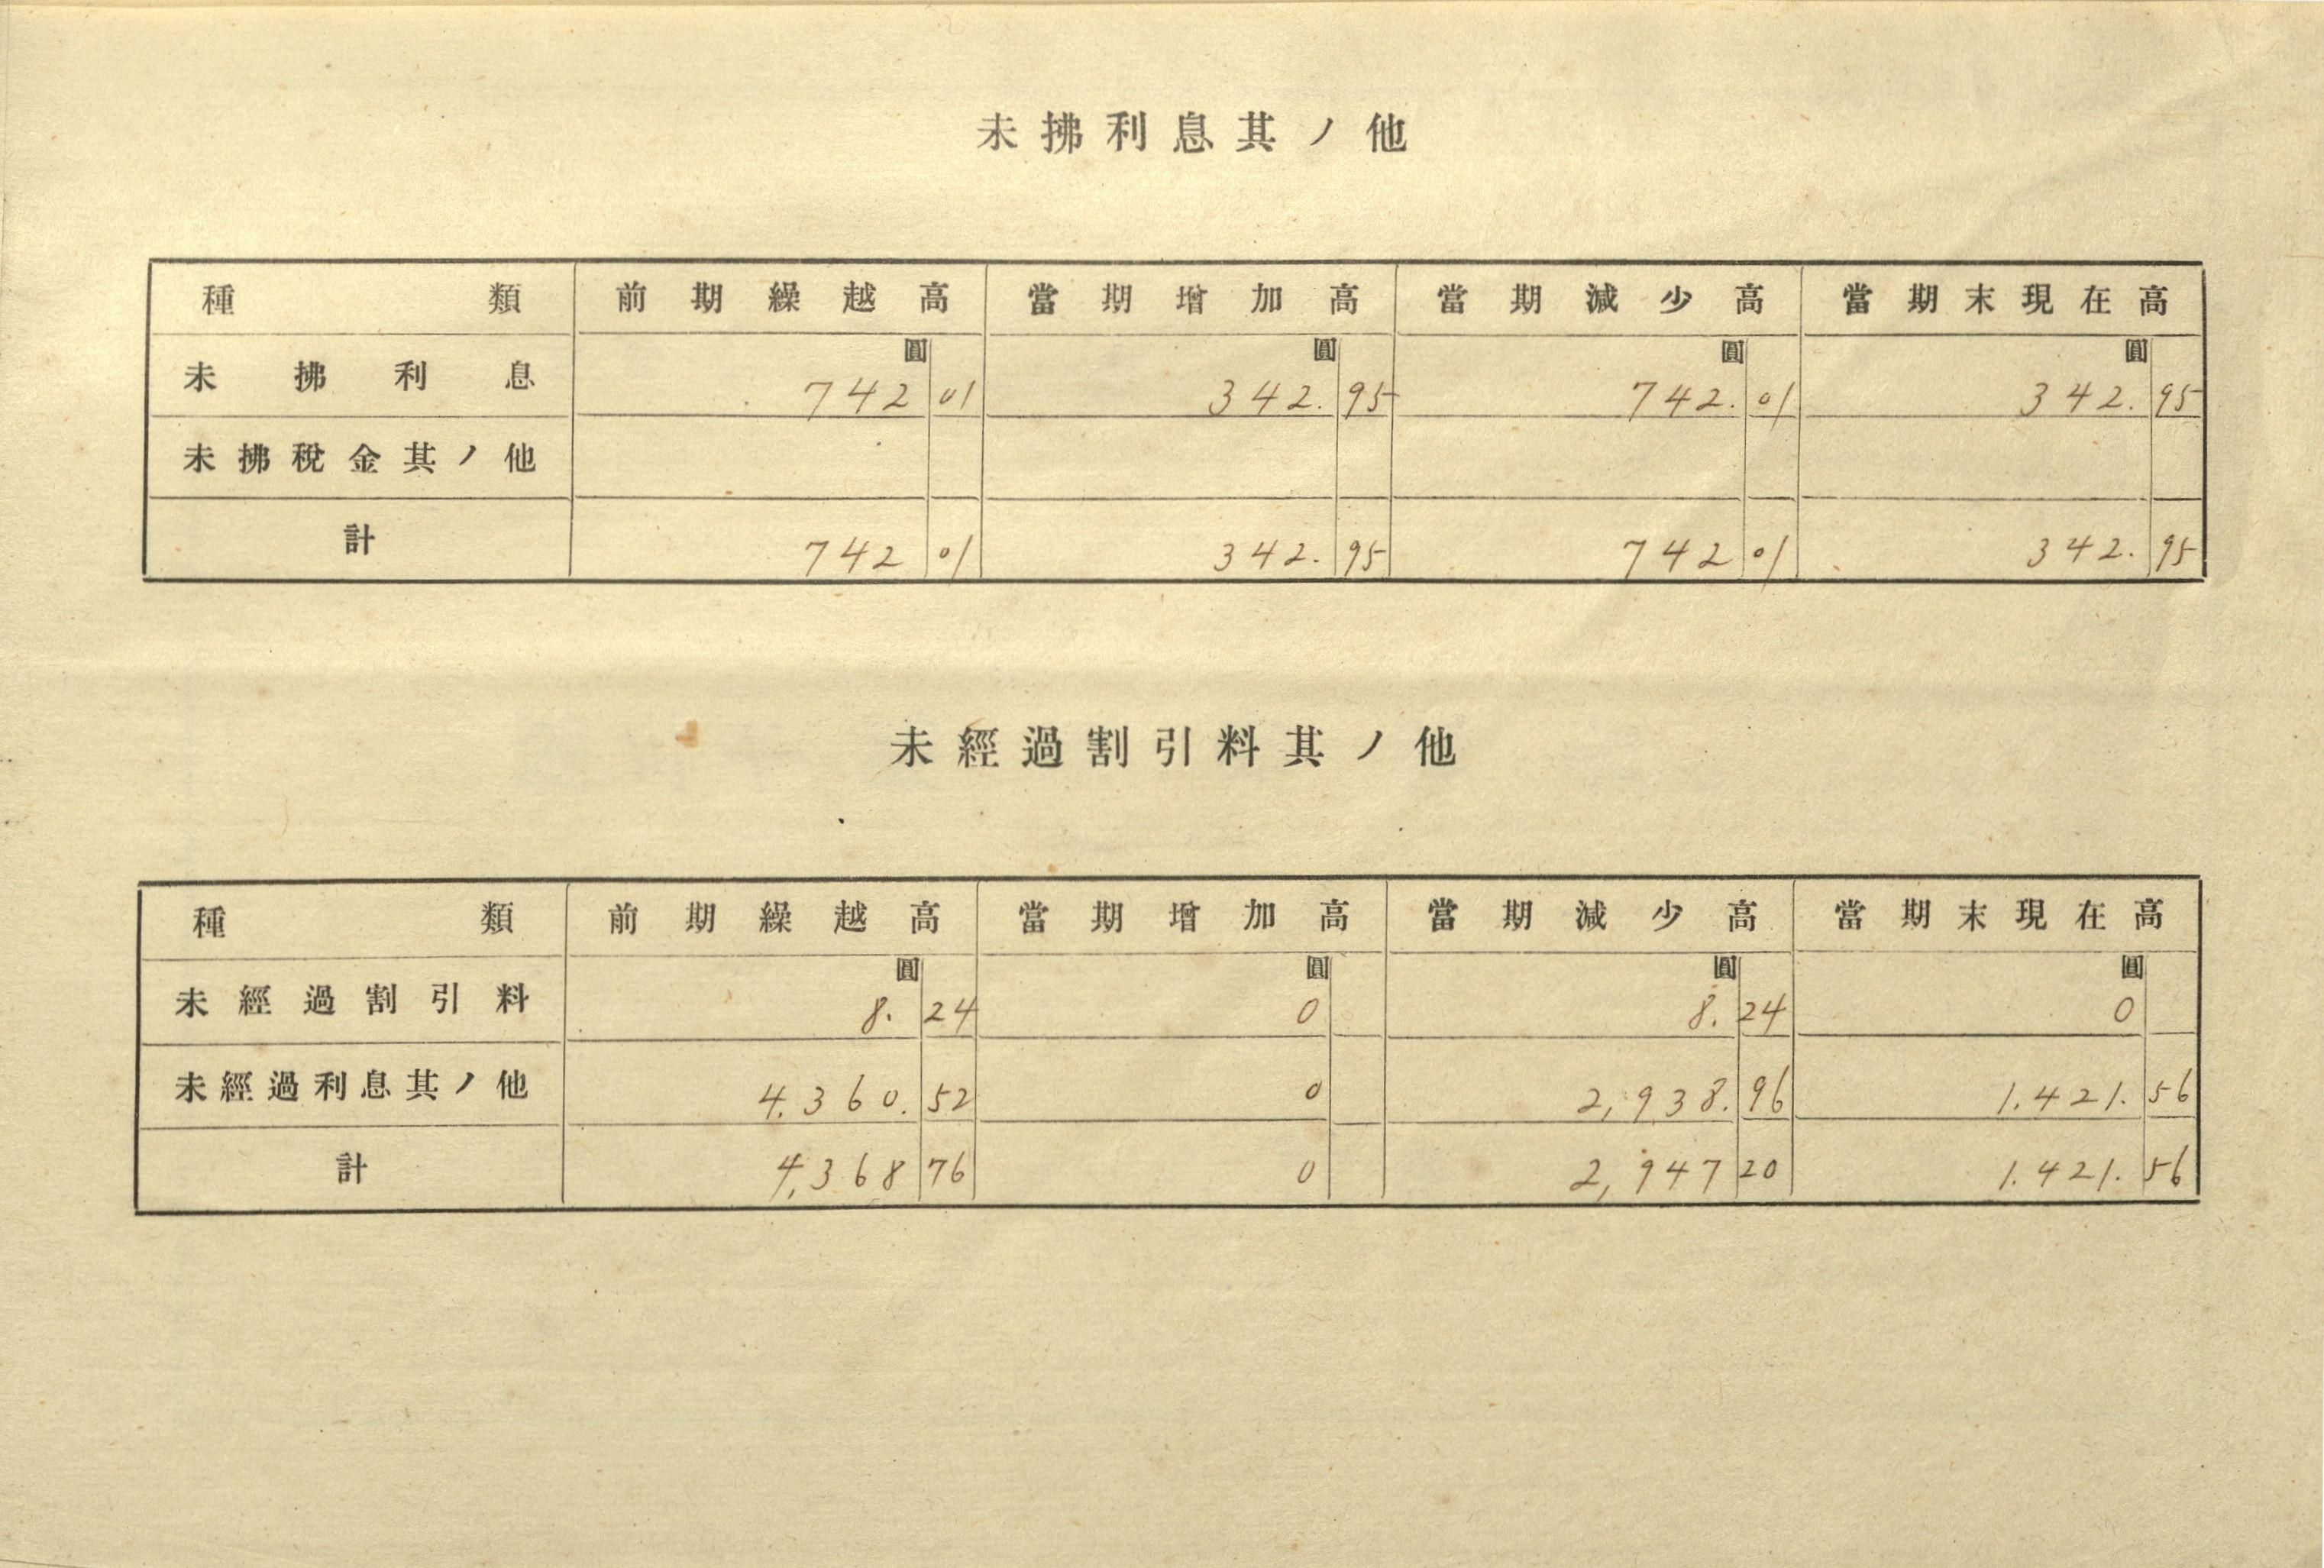 未拂利息其ノ他
種類 前期繰越高 當期增加高 當期減少高 當期末現在高
圓 圓 圓 圓
未拂利息 742 01 342. 95 742. 01 342. 95
未拂稅金其ノ他
計 742 01 342. 95 742 01 342. 95
未經過割引料其ノ他
種類 前期繰越高 當期增加高 當期減少高 當期末現在高
圓 圓 圓 圓
未經過割引料 8. 24 0 8. 24 0
未經過利息其ノ他 4,360. 52 0 2,938. 96 1.421. 56
計 4,368 76 0 2,947 20 1.421. 56